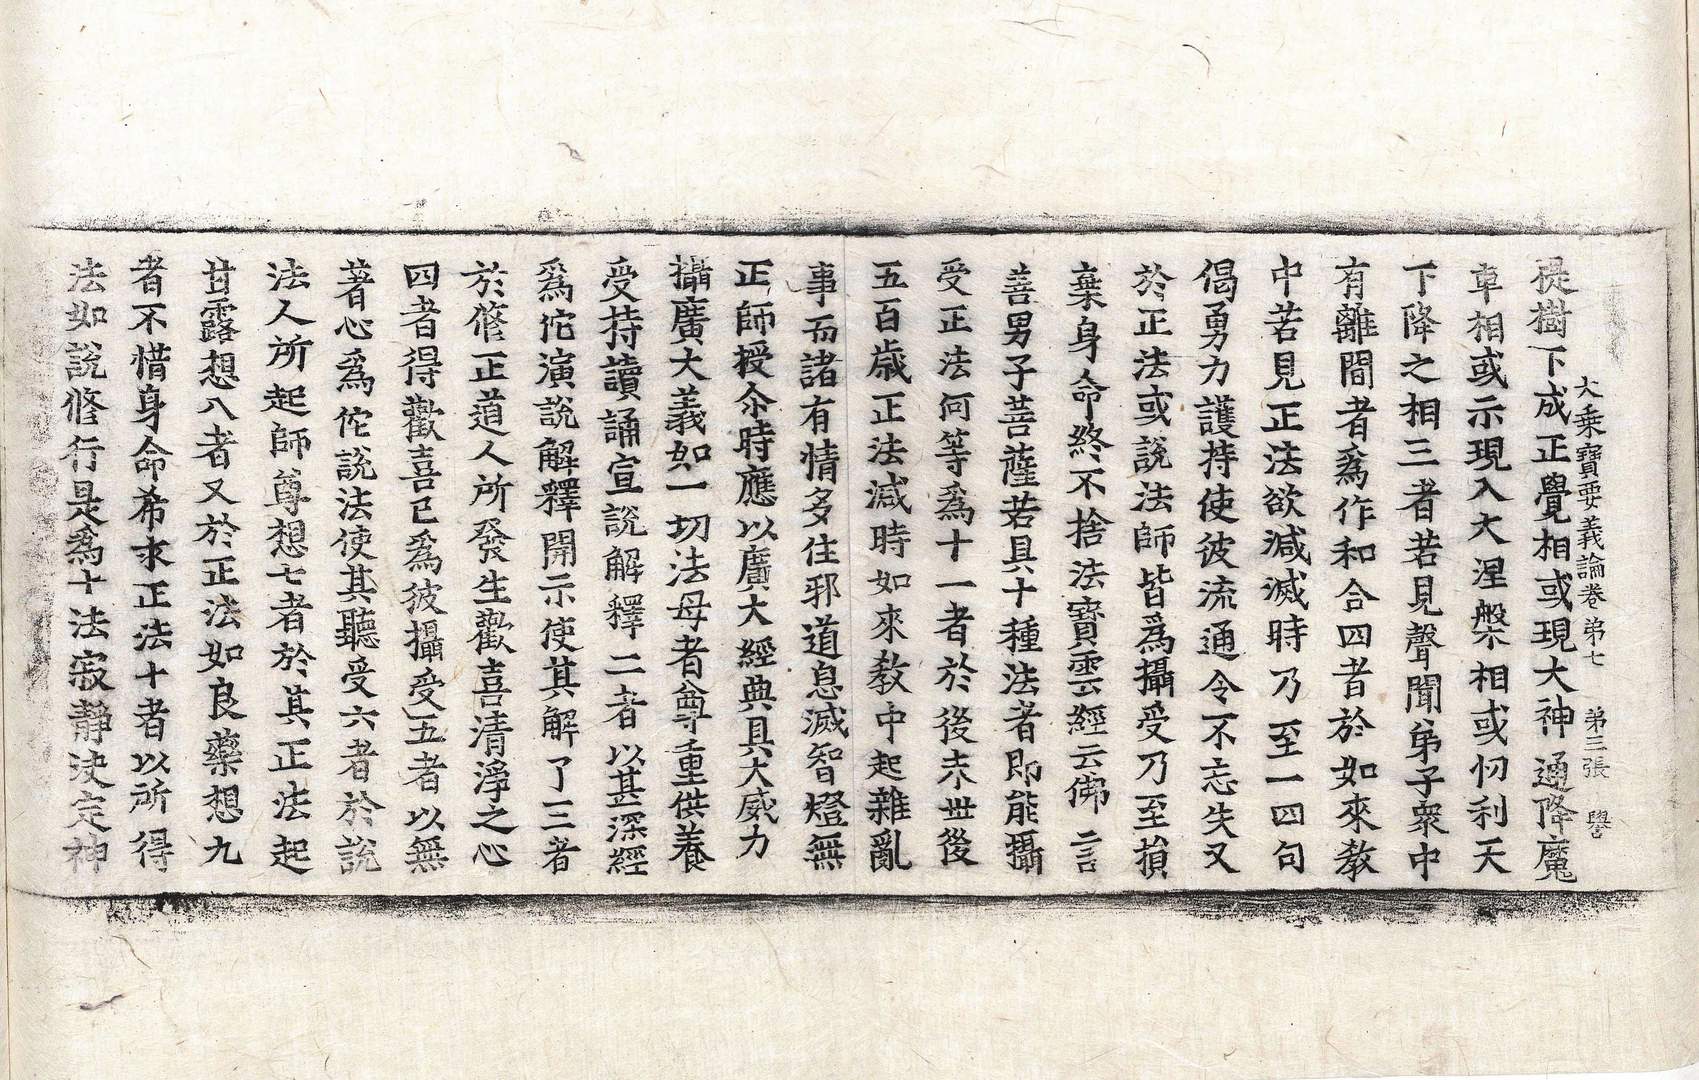 大乗寶要義論卷弟七　弟三張　譽
提樹下成正覺相或現大神通降魔
車相或示現入大涅槃相或忉利天
下降之相三者若見聲聞弟子衆中
有離間者爲作和合四者於如來教
中若見正法欲減滅時乃至一四句
偈勇力護持使彼流通令不忘失又
於正法或說法師皆爲攝受乃至損
棄身命終不捨法寶雲經云佛言
善男子菩薩若具十種法者即能攝
受正法何等爲十一者於後末世後
五百歲正法滅時如來教中起雜亂
事而諸有情多住邪道息滅智燈無
正師授尒時應以廣大經典具大威力
攝廣大義如一切法母者尊重供養
受持讀誦宣說解釋二者以甚深經
爲佗演說解釋開示使其解了三者
於修正道人所發生歡喜清淨之心
四者得歡喜已爲彼攝受五者以無
著心爲佗說法使其聽受六者於說
法人所起師尊想七者於其正法起
甘露想八者又於正法如良藥想九
者不惜身命希求正法十者以所得
法如說修行是爲十法寂靜決定神